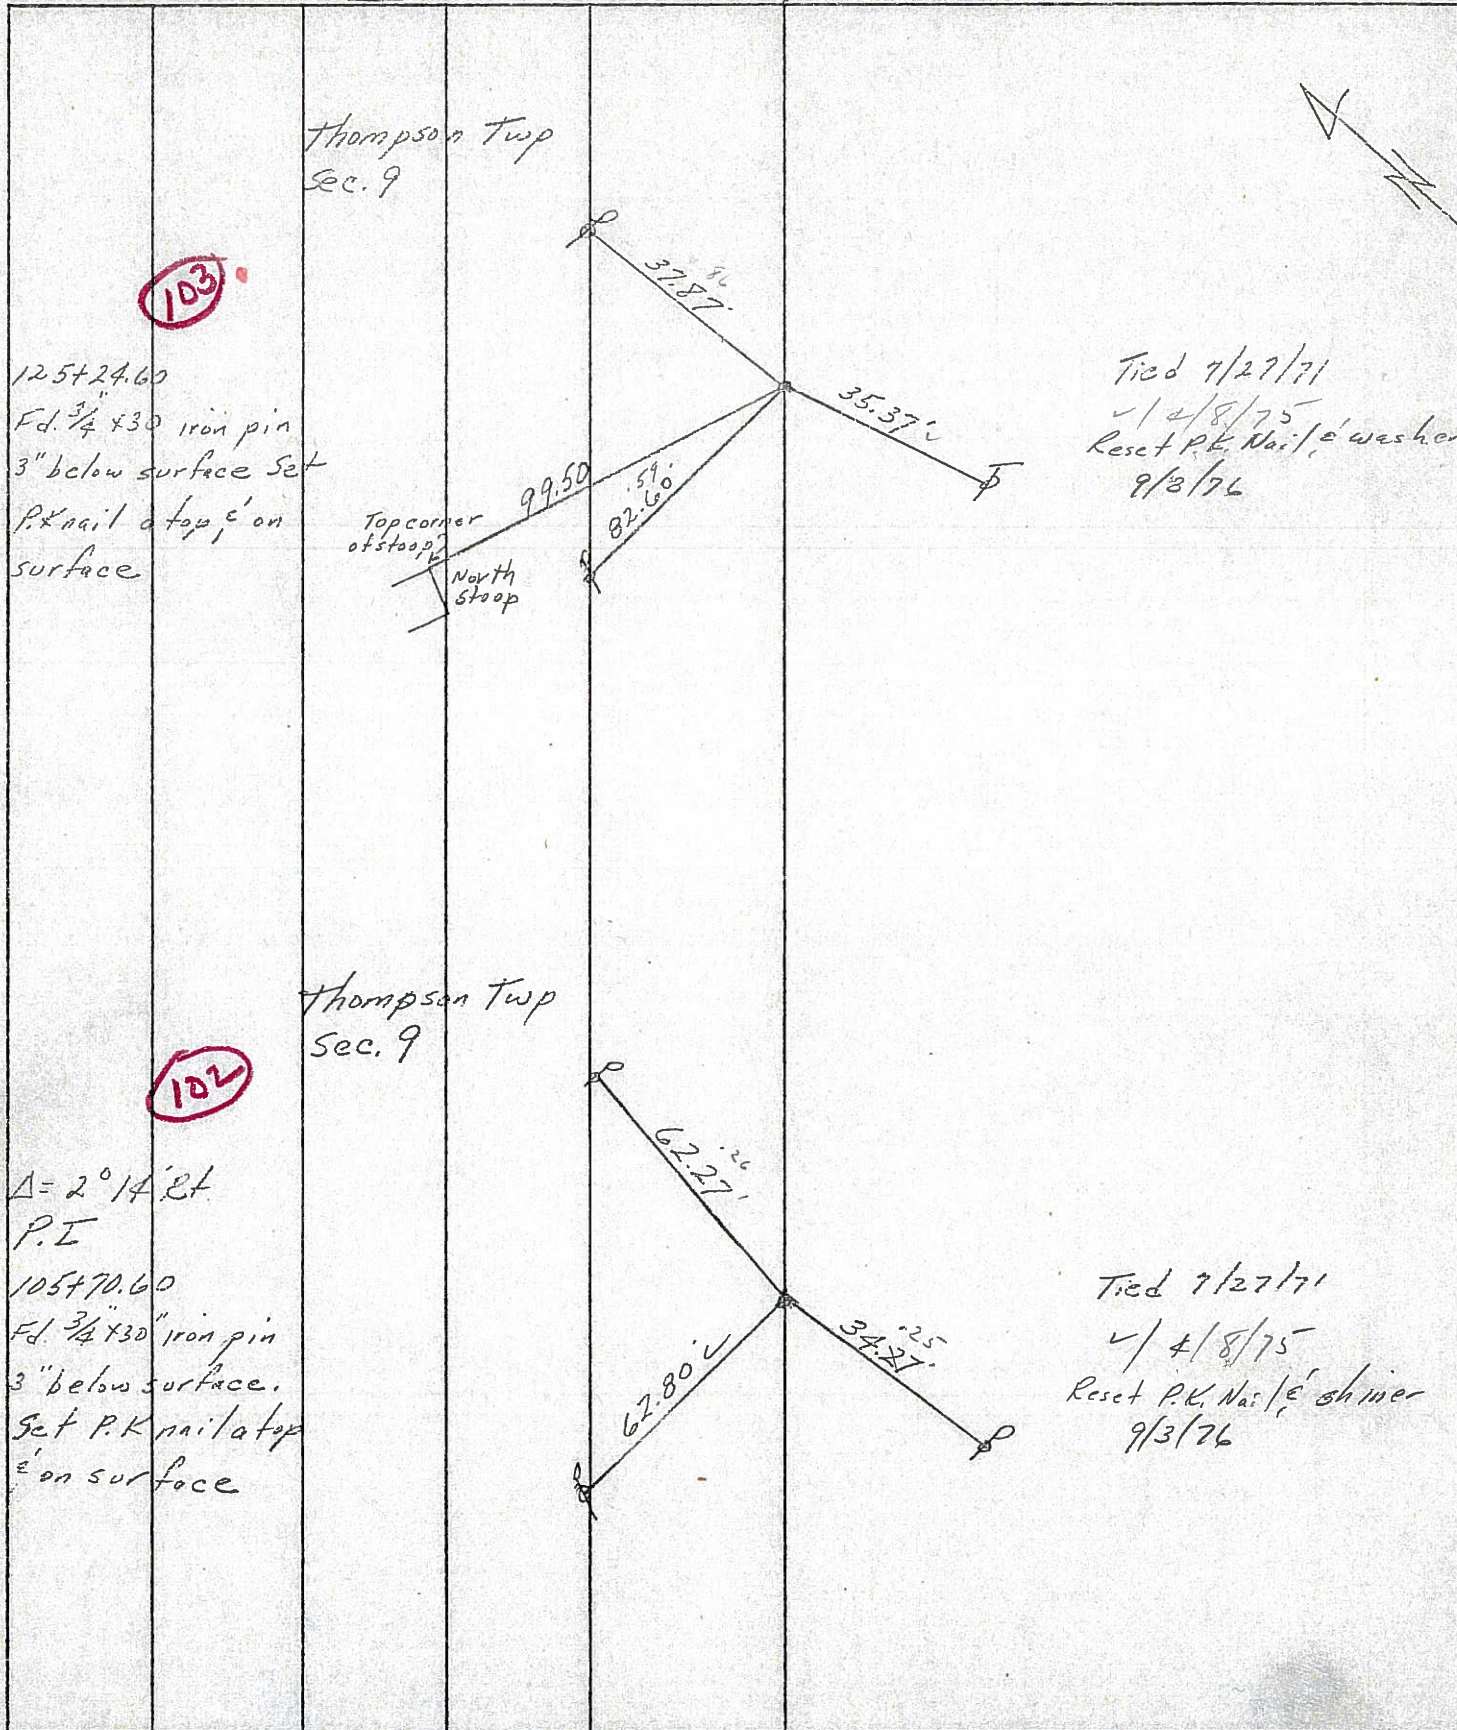 Thompson Twp
Sec. 9
103
125+24.60
Fd. 3/4" x 30 iron pin
3" below surface Set
P.K nail atop & on
surface
37.87'
.86
35.37'
99.50
.59
82.60'
Top corner
of stoop
North
stoop
Tied 7/27/71
✓ 4/8/75
Reset P.K. Nail & washer
9/8/76
N
Thompson Twp
Sec. 9
102
Δ= 2°14' Rt.
P.I
105+70.60
Fd. 3/4" x 30" iron pin
3" below surface.
Set P.K nail atop
& on surface
62.27'
.26
34.27'
.25
62.80' ✓
Tied 7/27/71
✓ 4/8/75
Reset P.K. Nail & shiner
9/3/76